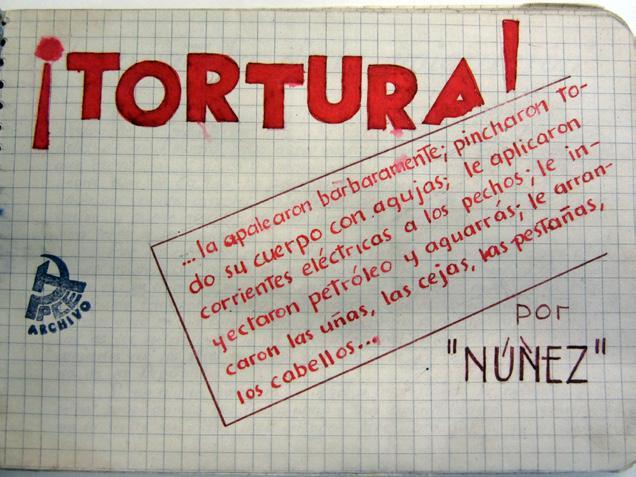 ¡TORTURA!
...la apalearon bárbaramente; pincharon to-
do su cuerpo con agujas; le aplicaron
corrientes eléctricas a los pechos; le in-
yectaron petróleo y aguarrás; le arran-
caron las uñas, las cejas, las pestañas,
los cabellos...
por
"NÚÑEZ"
PCE
ARCHIVO